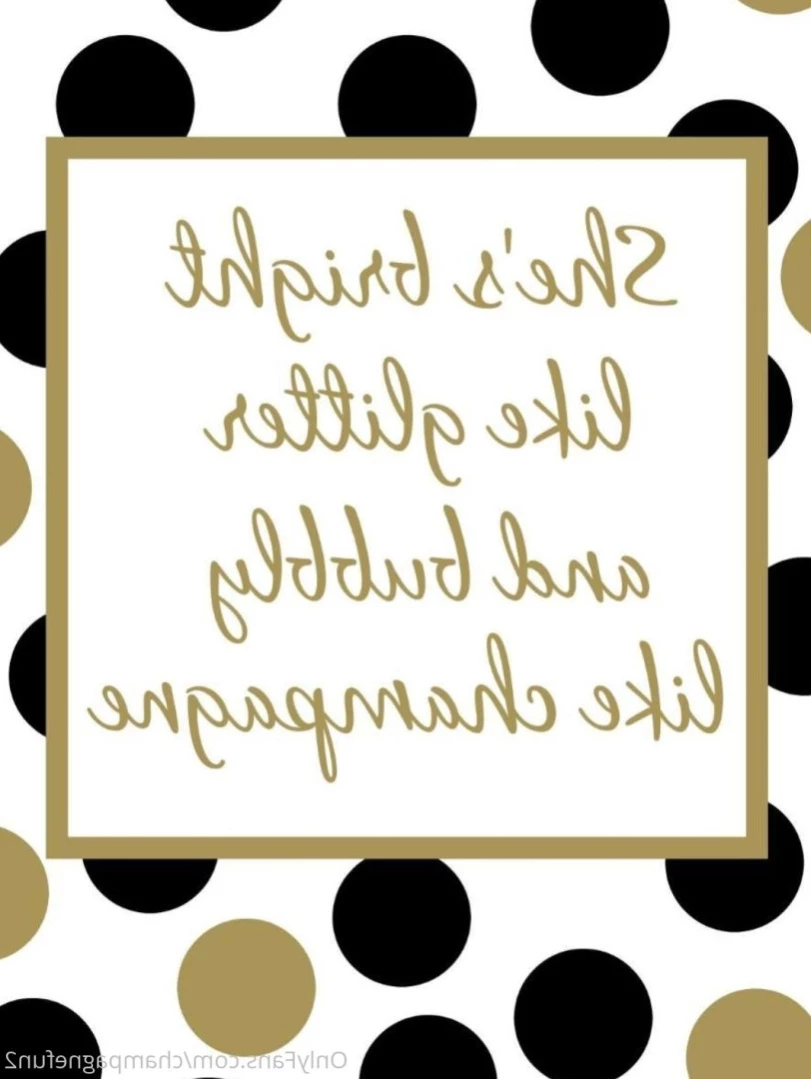 She's bright
like glitter
and bubbly
like champagne
OnlyFans.com/champagnefun2